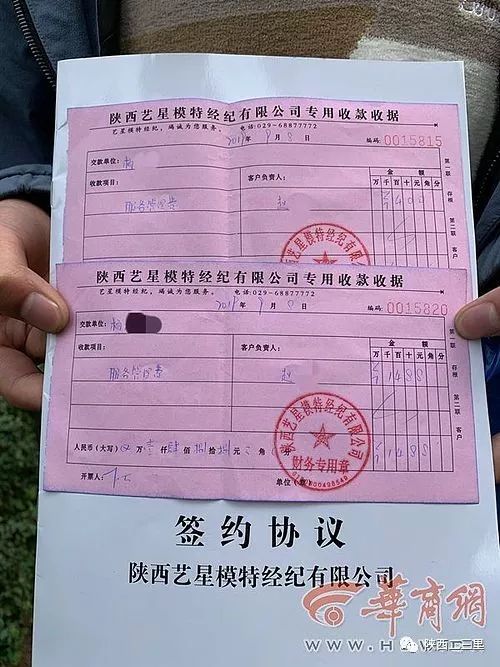 陕西艺星模特经纪有限公司专用收款收据
艺星模特经纪,竭诚为您服务。 电话:029-68877772
2019年9月8日 编码:0015815
交款单位:杨
金额
收款项目: 客户负责人: 万千百十元角分
服务管理费 赵
第一联 存根 第二联 客户
陕西艺星模特经纪有限公司
陕西艺星模特经纪有限公司专用收款收据
艺星模特经纪,竭诚为您服务。 电话:029-68877772
2019年9月8日 编码:0015820
交款单位:杨
金额
收款项目: 客户负责人: 万千百十元角分
服务管理费 赵 1488
第一联 存根 第二联 客户
陕西艺星模特经纪有限公司
财务专用章
人民币(大写) 万壹仟肆佰捌拾捌元 角 分 1488
开票人: 单位(章)
签约协议
陕西艺星模特经纪有限公司
华商網
www.h
陕西二三里